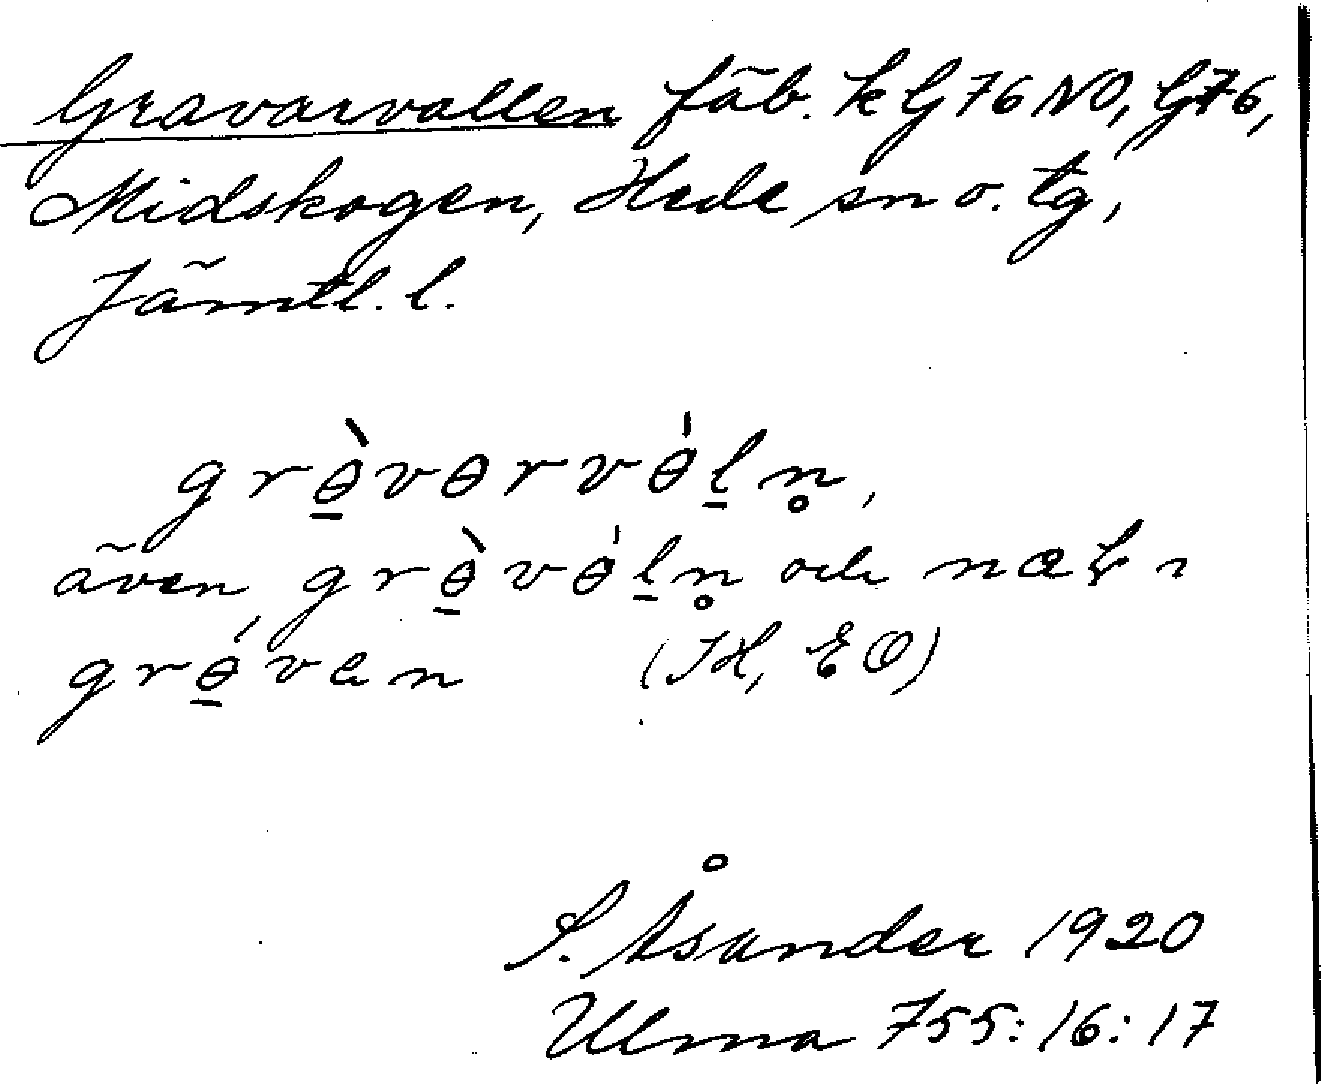 Gravarvallen fäb. k G 76 NO, G 76,
Midskogen, Hede sn o. tg,
Jämtl. l.
grɵ̠̀vɵrvɵ́l̠n̥,
även grɵ̠̀vɵ́l̠n̥ och
grɵ̠́van (JH, EO)
S. Åsander 1920
Ulma 755:16:17